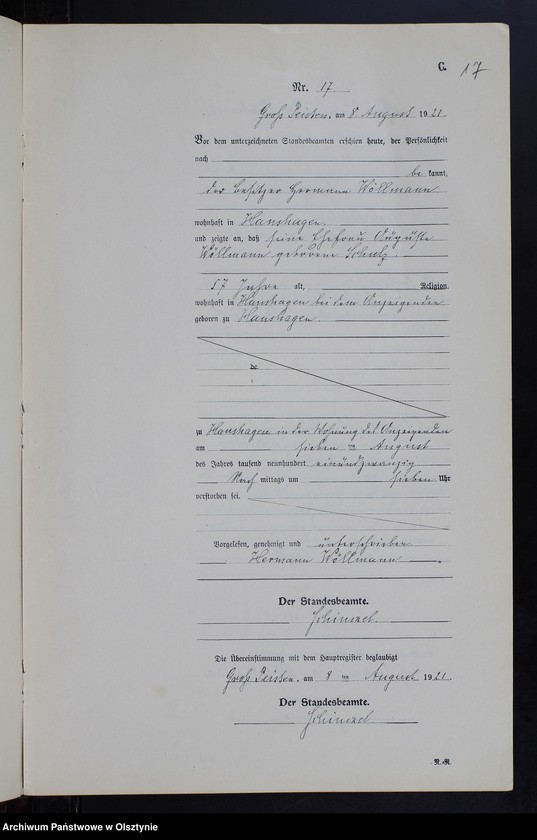 C. 17
Nr. 17
Groß Peisten, am 8 August 1921
Vor dem unterzeichneten Standesbeamten erschien heute, der Persönlichkeit
nach
be kannt,
der Besitzer Hermann Wöllmann
wohnhaft in Hanshagen.
und zeigte an, daß seine Ehefrau Auguste
Wöllmann geborene Schulz.
57 Jahre alt, Religion,
wohnhaft in Hanshagen bei dem Anzeigenden
geboren zu Hanshagen.
de
zu Hanshagen in der Wohnung des Anzeigenden
am sieben ten August
des Jahres tausend neunhundert einundzwanzig
Nach mittags um sieben Uhr
verstorben sei.
Vorgelesen, genehmigt und unterschrieben
Hermann Wöllmann
Der Standesbeamte.
Die Übereinstimmung mit dem Hauptregister beglaubigt
Groß Peisten, am 8 ten August 1921.
Der Standesbeamte.
N.-R.
Archiwum Państwowe w Olsztynie